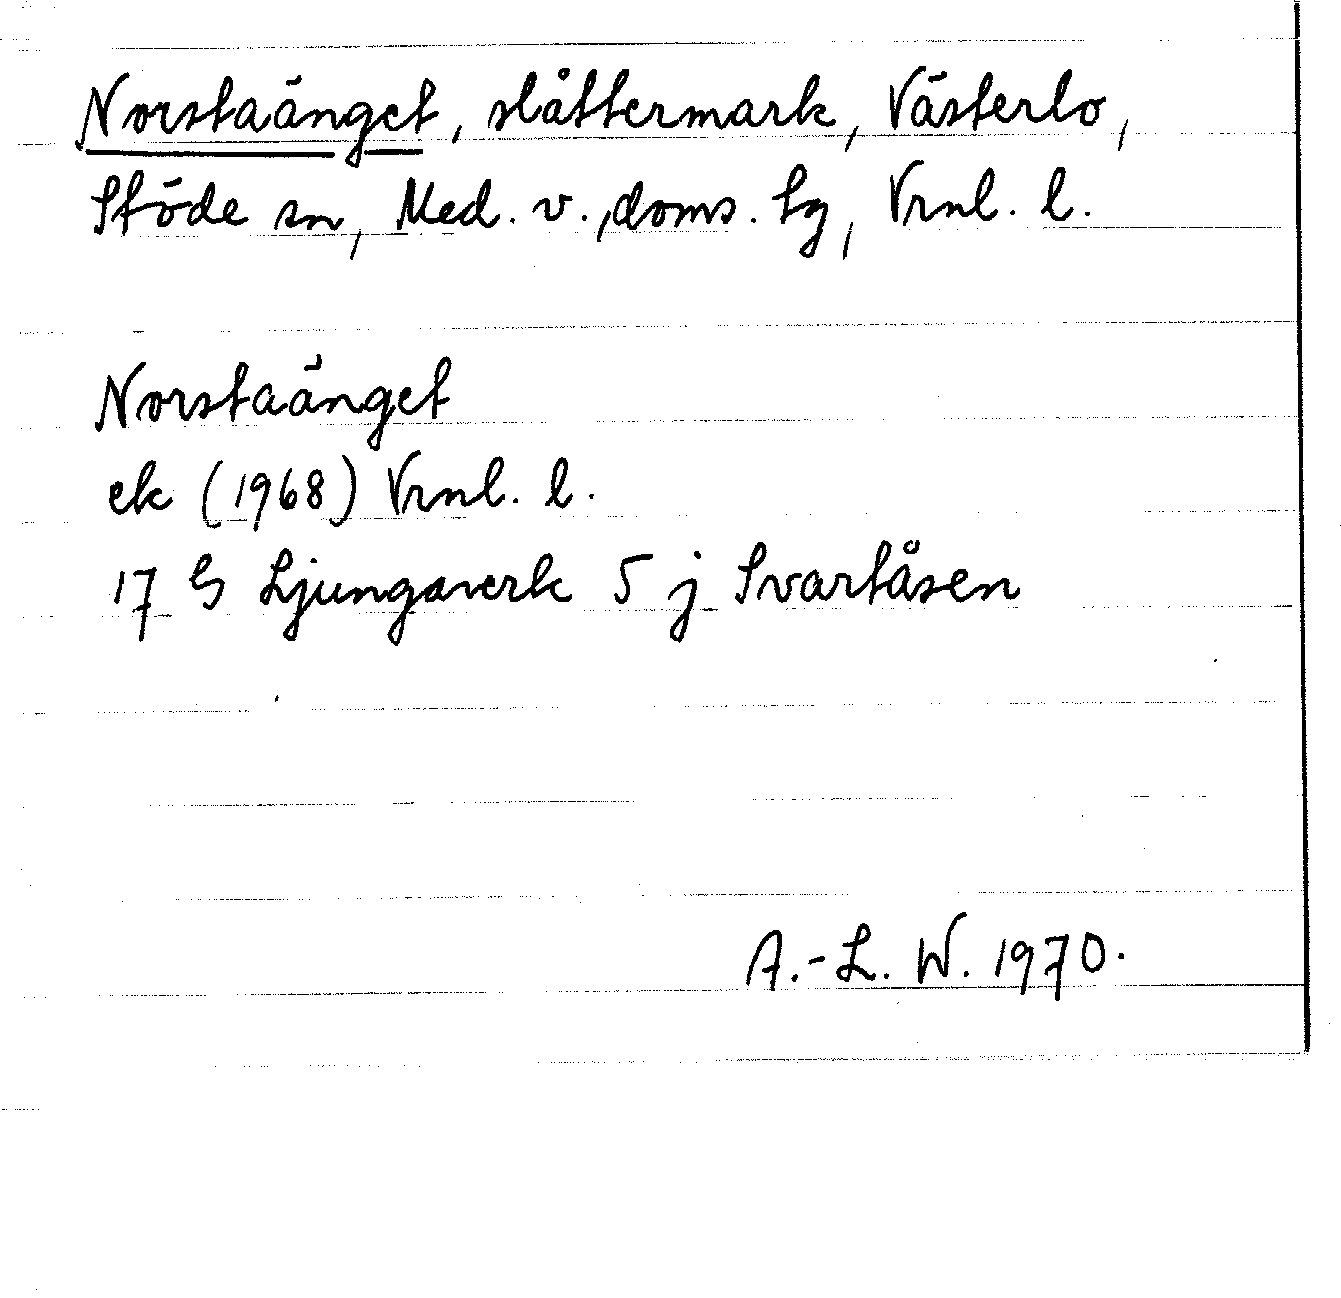 Norstaänget, slåttermark, Västerlo,
Stöde sn, Med. v., doms. tg, Vrnl. l.
Norstaänget
ek (1968) Vrnl. l.
17 G Ljungaverk 5 j Svartåsen
A.-L. W. 1970.